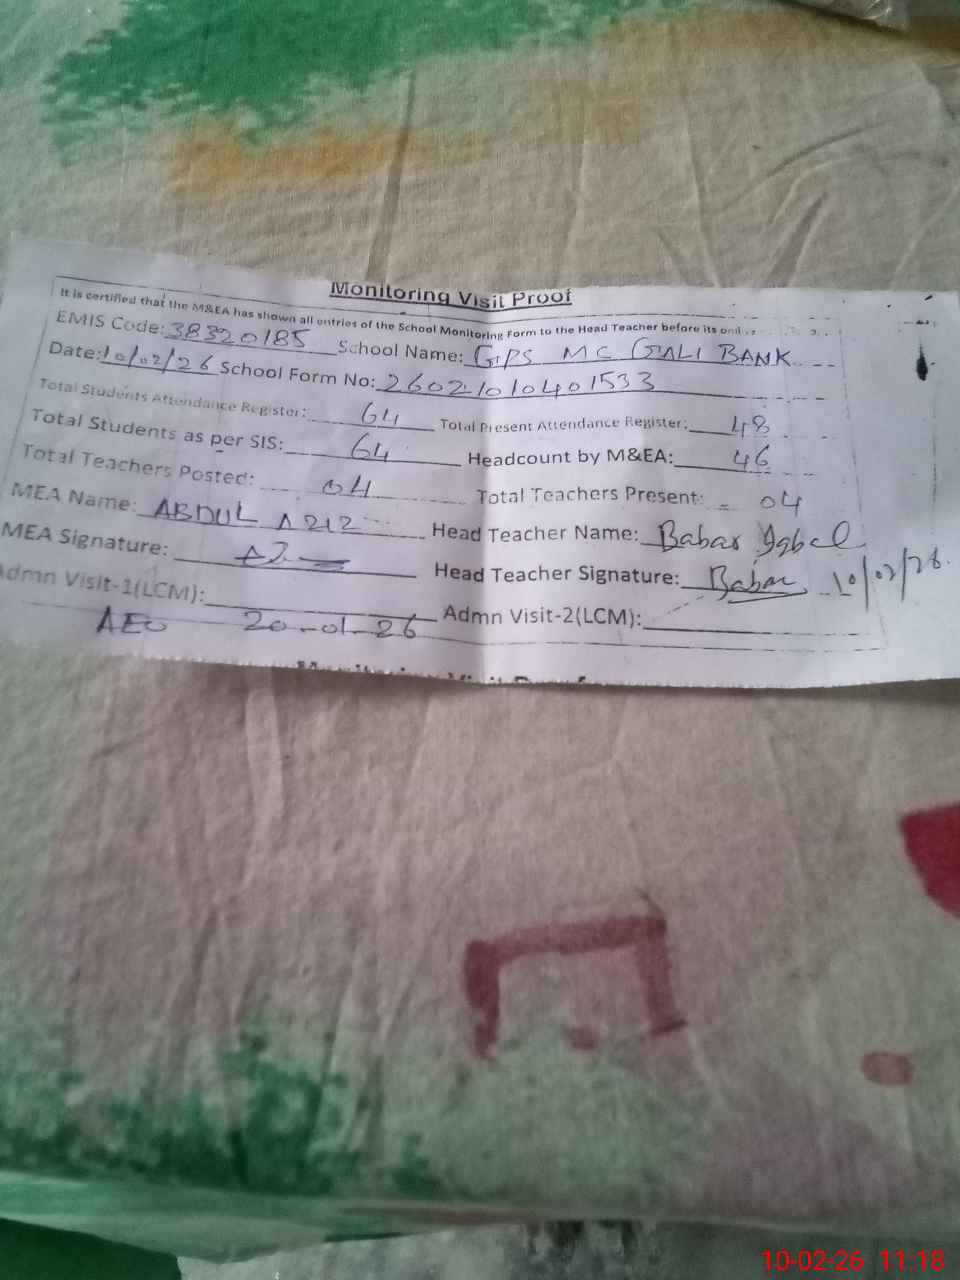 Monitoring Visit Proof
It is certified that the M&EA has shown all entries of the School Monitoring Form to the Head Teacher before its
EMIS Code: 38320185 School Name: GPS MC GALI BANK
Date: 10/02/26 School Form No: 26021010401533
Total Students Attendance Register: 64 Total Present Attendance Register: 48
Total Students as per SIS: 64 Headcount by M&EA: 46
Total Teachers Posted: 04 Total Teachers Present: 04
MEA Name: ABDUL AZIZ Head Teacher Name: Babar Iqbal
MEA Signature: Head Teacher Signature: Babar 10/02/26.
Admn Visit-1(LCM): Admn Visit-2(LCM):
AEO 20-01-26
10-02-26 11:18